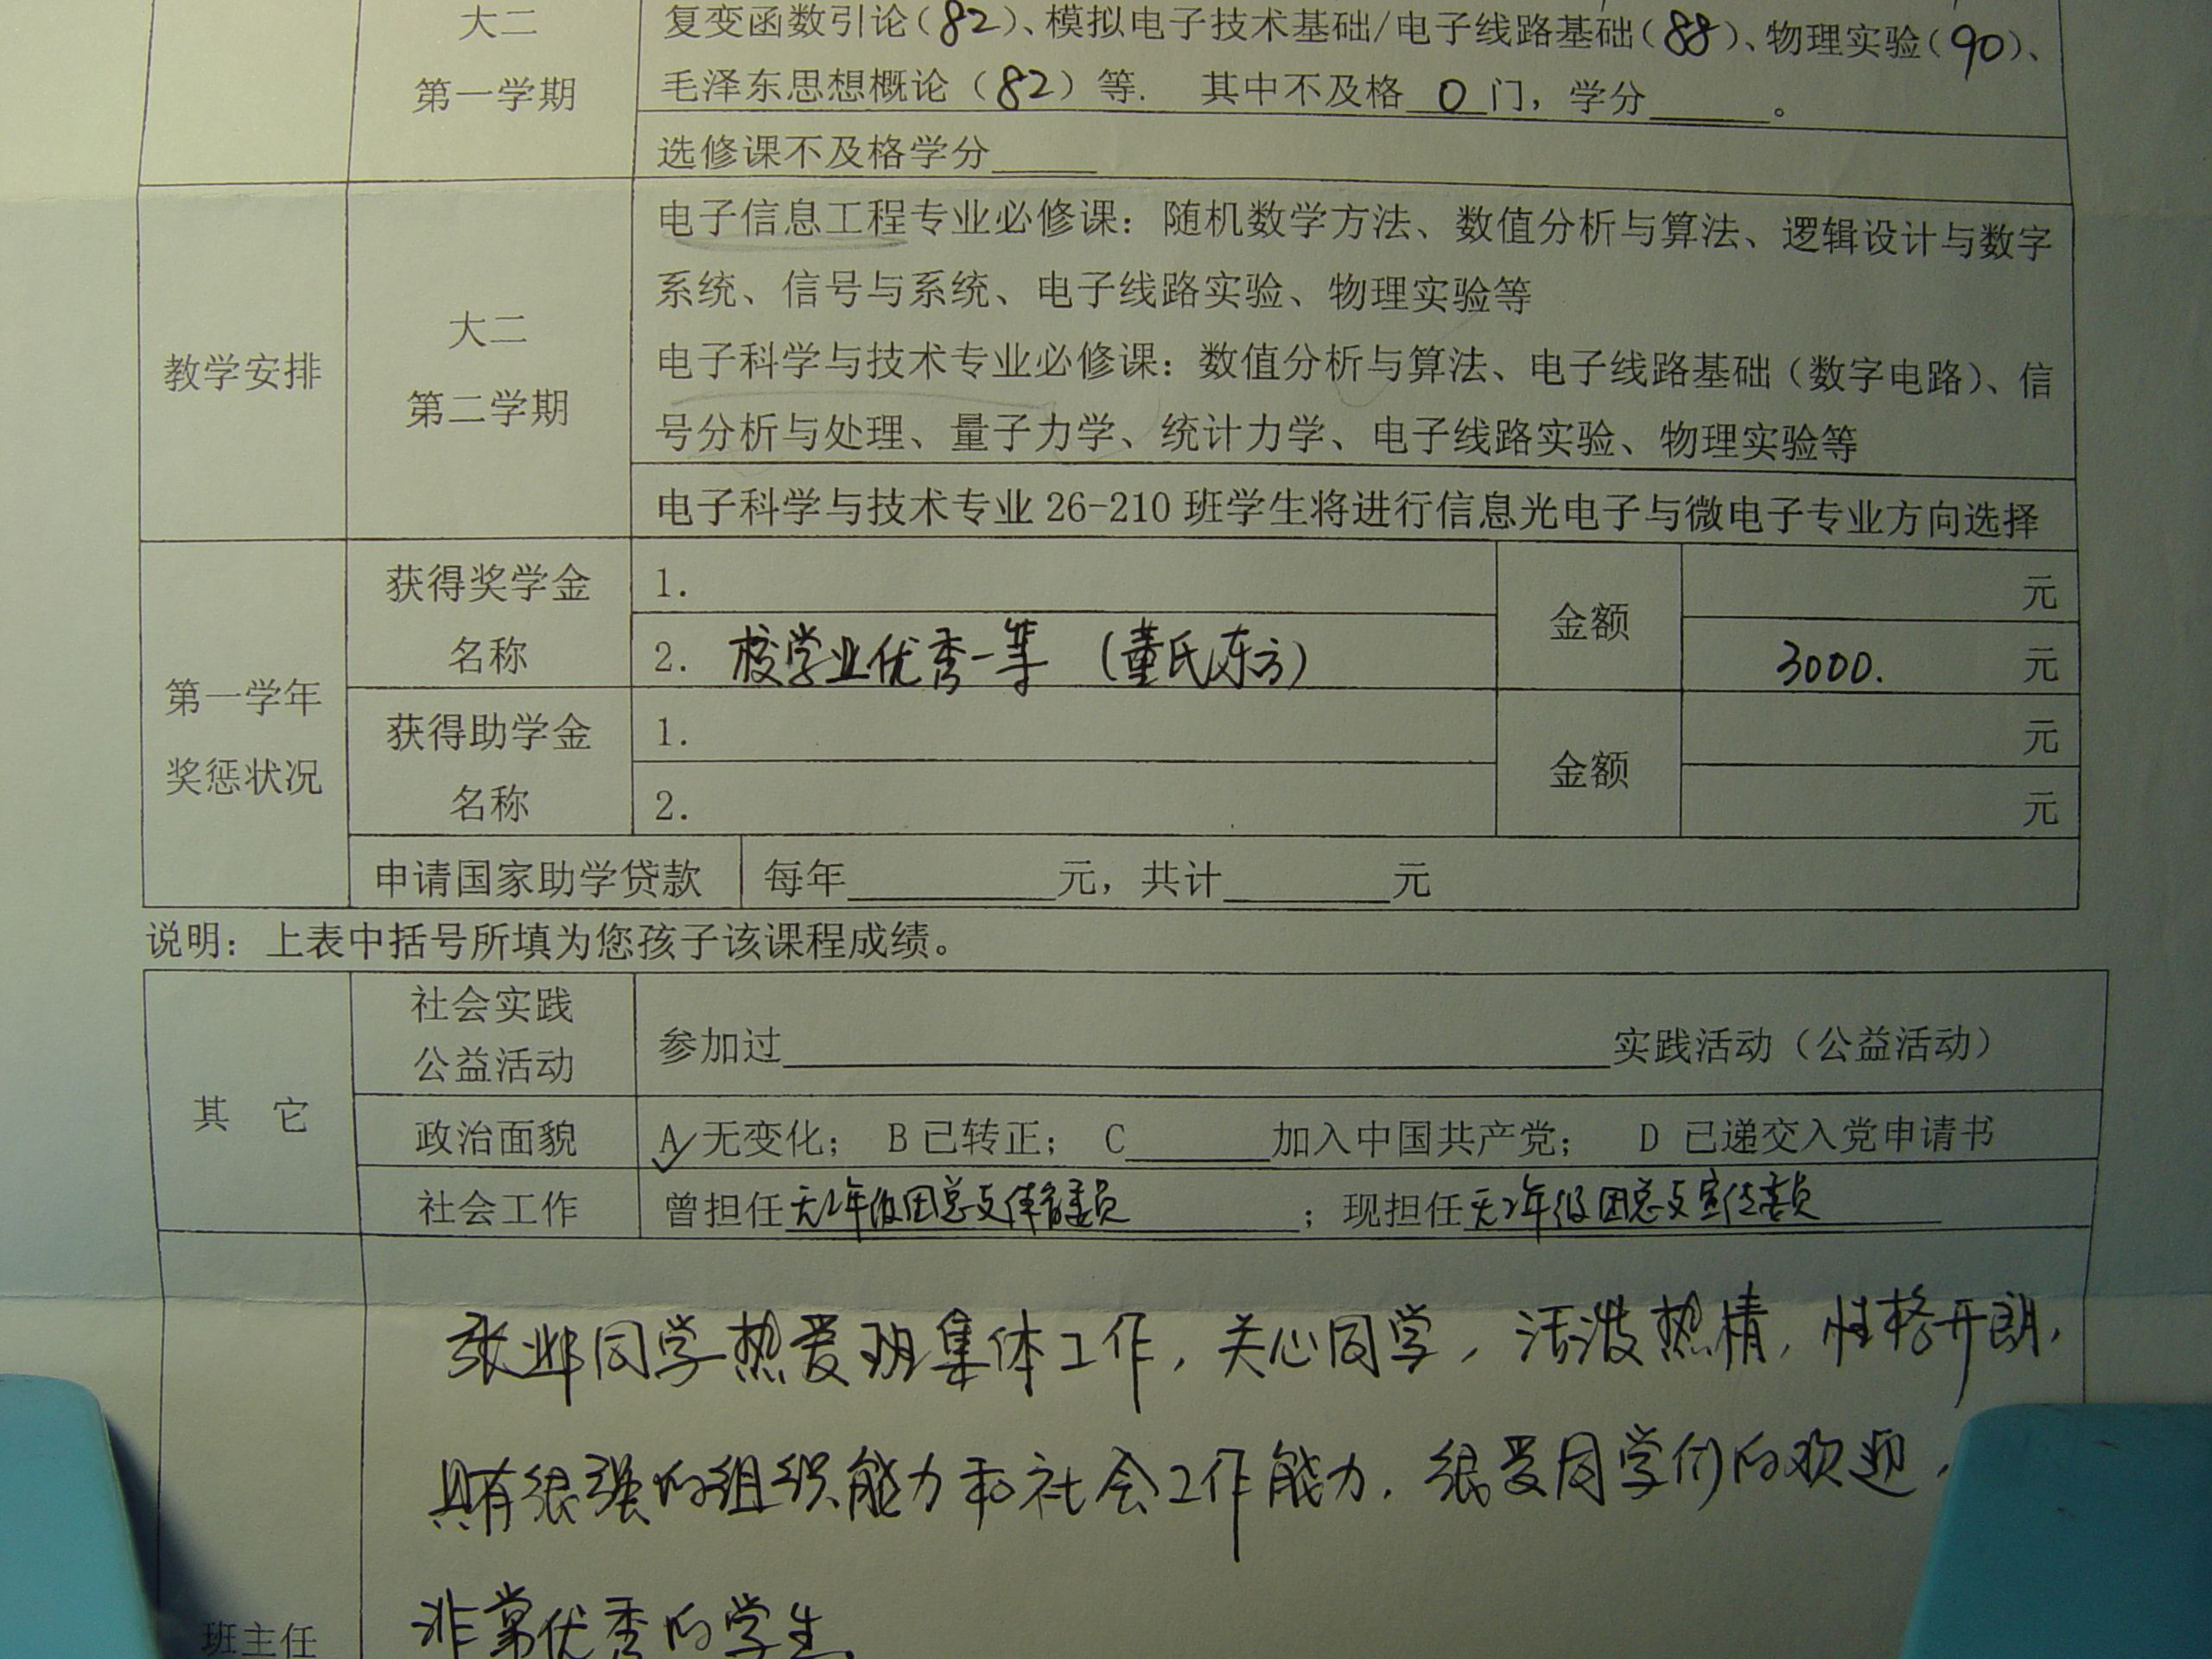 大二
第一学期
复变函数引论(82)、模拟电子技术基础/电子线路基础(88)、物理实验(90)、
毛泽东思想概论（82）等. 其中不及格 0 门，学分______。
选修课不及格学分_____
教学安排
大二
第二学期
电子信息工程专业必修课：随机数学方法、数值分析与算法、逻辑设计与数字
系统、信号与系统、电子线路实验、物理实验等
电子科学与技术专业必修课：数值分析与算法、电子线路基础（数字电路）、信
号分析与处理、量子力学、统计力学、电子线路实验、物理实验等
电子科学与技术专业 26-210 班学生将进行信息光电子与微电子专业方向选择
第一学年
奖惩状况
获得奖学金
名称
1.
2. 校学业优秀一等（董氏东方）
金额
元
3000. 元
获得助学金
名称
1.
2.
金额
元
元
申请国家助学贷款
每年__________元，共计________元
说明：上表中括号所填为您孩子该课程成绩。
其 它
社会实践
公益活动
参加过______________________________实践活动（公益活动）
政治面貌
A✓无变化； B已转正； C_______加入中国共产党； D 已递交入党申请书
社会工作
曾担任无2年级团总支体育委员；现担任无2年级团总支宣传委员
张邺同学热爱班集体工作，关心同学，活泼热情，性格开朗，
具有很强的组织能力和社会工作能力，很受同学们的欢迎，
非常优秀的学生.
班主任